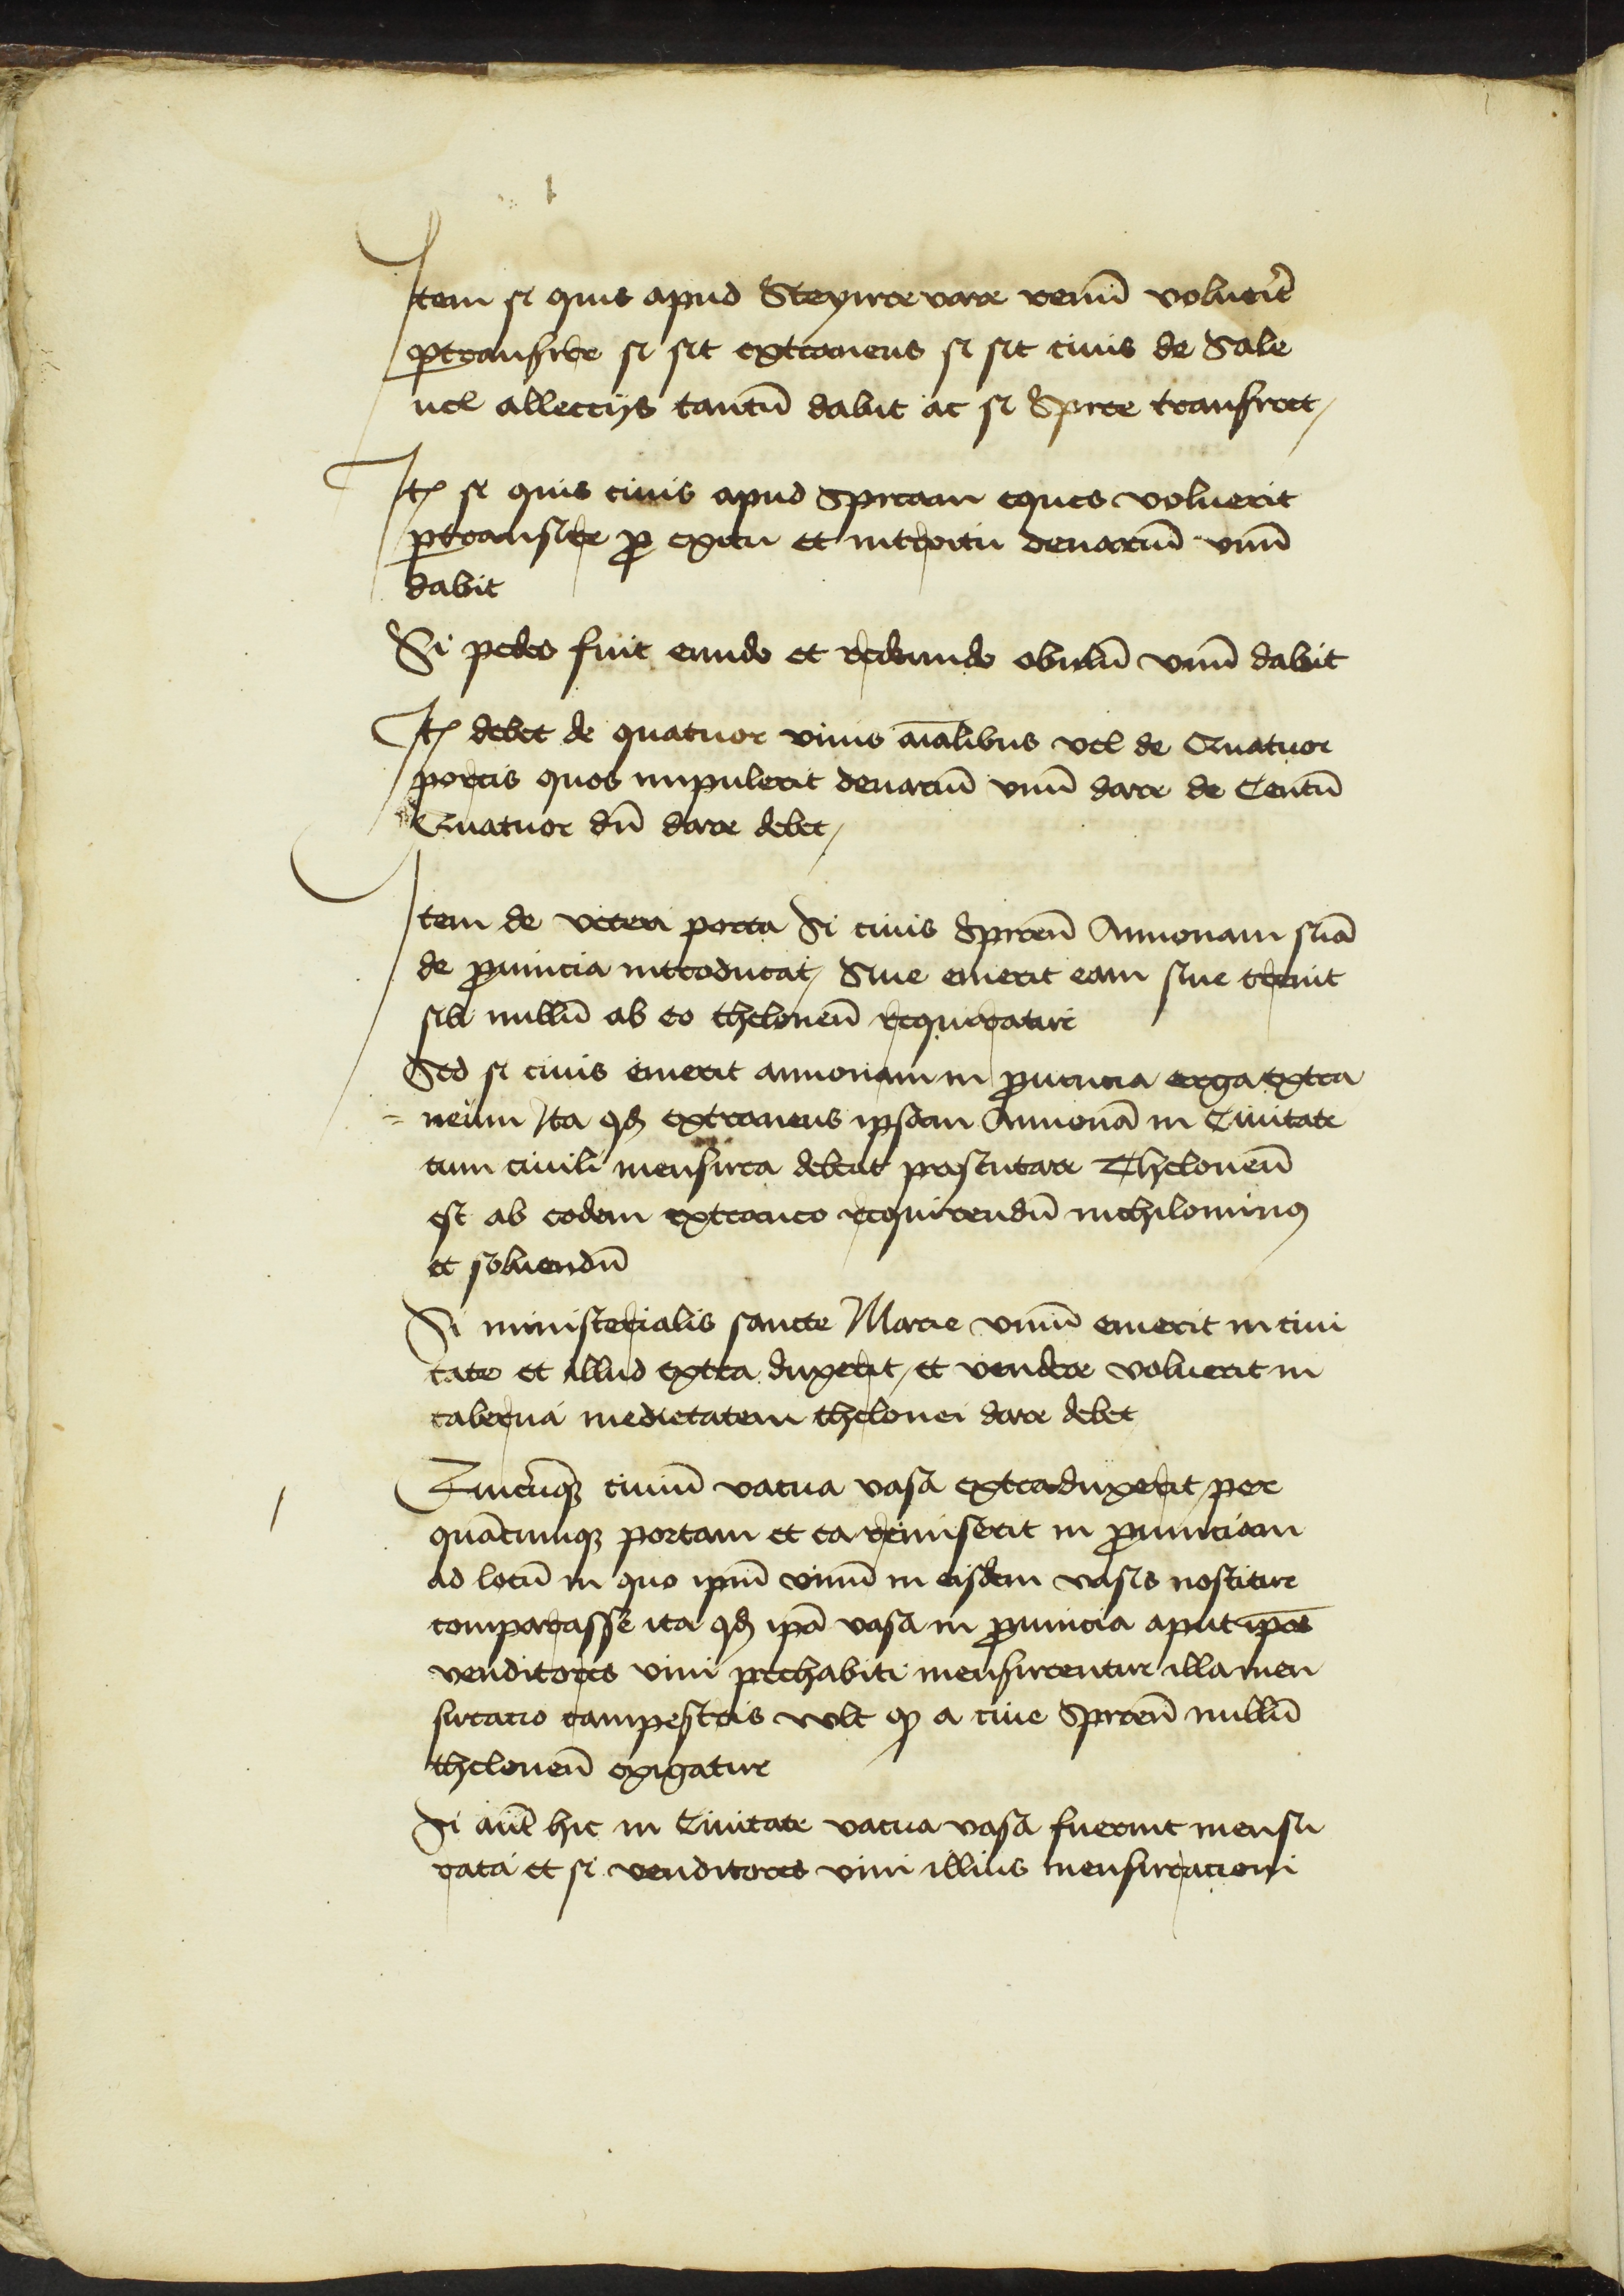 Item si quis apud Steynre vare renū voluerit
ptransire si sit extraneus si sit ciuis de Sale
uel alleccijs tantū dabit ac si Spire transiret
Itē si quis ciuis apud Spiram eques voluerit
ptransire pro exitu et introitu denariū vnū
dabit
Si pedes fuit eundo et redeundo obulū vnū dabit
Itē debet de quatuor viuis aīalibus vel de Quatuor
porcis quos impulerit denariū vnū dare de Centū
Quatuor dñ dare debet
Item de veteri porta Si ciuis Spireñ Annonam suā
de prouincia introducat Siue emerit eam siue creuit
sibi nullū ab eo theloneū requiratur
Sed si ciuis emerit annonam in prouincia erga extra
= neum Ita qd extraneus ipsam Annonā in Ciuitate
cum ciuili mensura debeat presentare Theloneū
est ab eodem extraneo requirendū nichilominus
et soluendū
Si ministerialis sancte Marie vinū emerit in ciui
tate et illud extra duxerit et vendere voluerit in
taberna medietatem thelonei dare debet
Quicūq ciuiū vacua vasa extraduxerit per
quācumq portam et ea remiserit in prouinciam
ad locū in quo ipm vinū in eisdem vasis noscitur
comparasse ita qd ipā vasa in prouincia aput ipos
venditores vini prehabiti mensurentur illa men
suracio campestris vult qd a ciue Spireñ nullū
theloneū exigatur
Si aūt hic in Ciuitate vacua vasa fuerint mensu
rata et si venditores vini illius mensuracioni